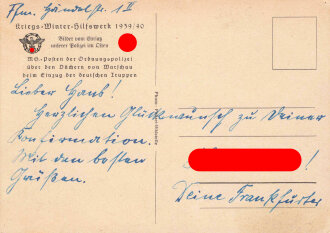 Ffm. Händelstr. 1 II
Kriegs-Winter-Hilfswerk 1939/40
Bilder vom Einsatz
unserer Polizei im Osten
MG.-Posten der Ordnungspolizei
über den Dächern von Warschau
beim Einzug der deutschen Truppen
Lieber Hans!
Herzlichen Glückwunsch zu Deiner
Konfirmation.
Mit den besten
Grüßen.
!
Deine Frankfurter